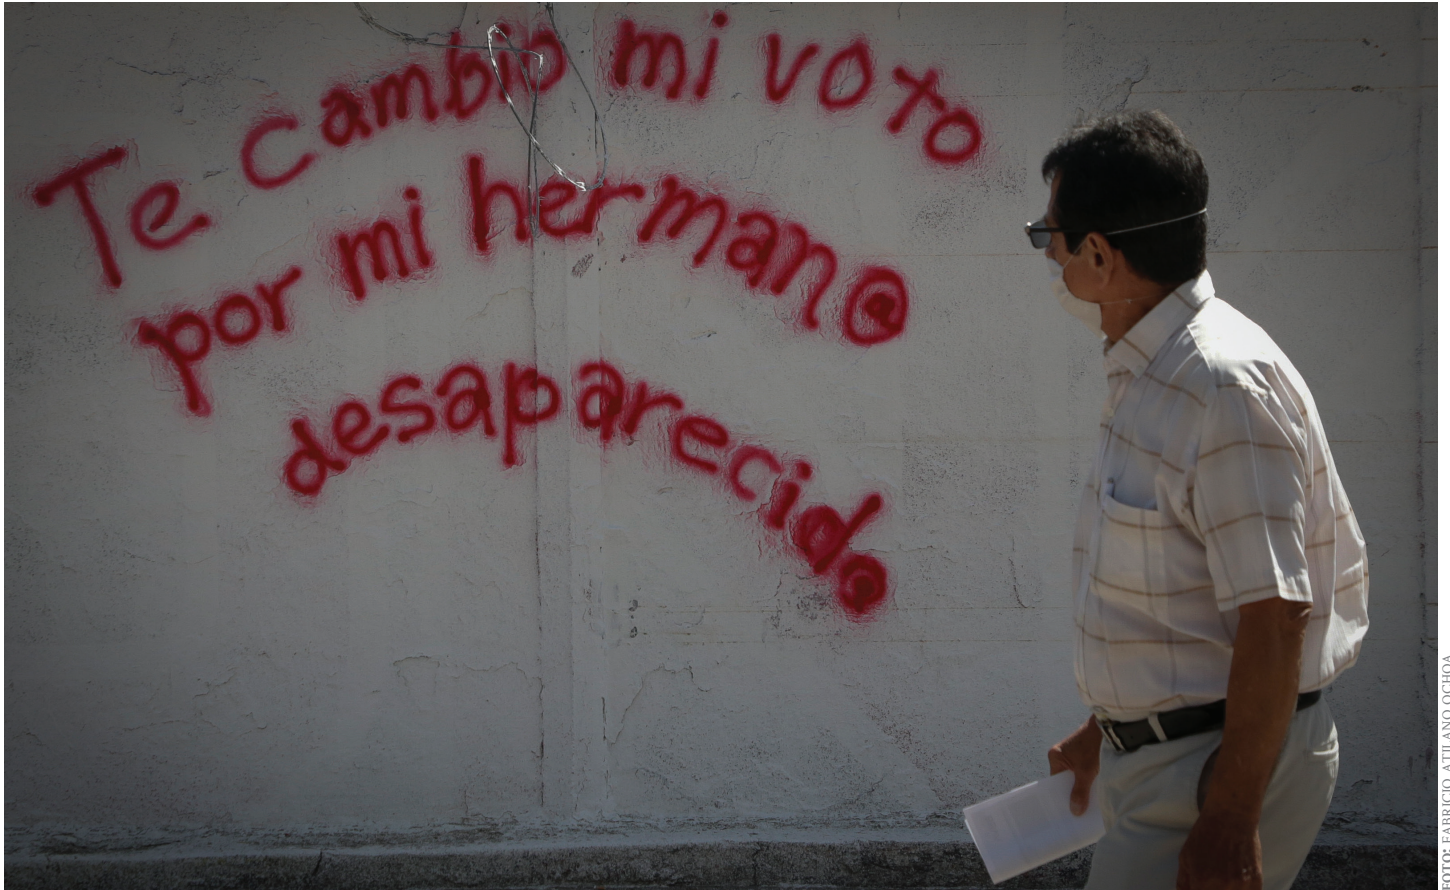 Te cambio mi voto
por mi herman@
desaparecid@
FOTO: FABRICIO ATILANO OCHOA